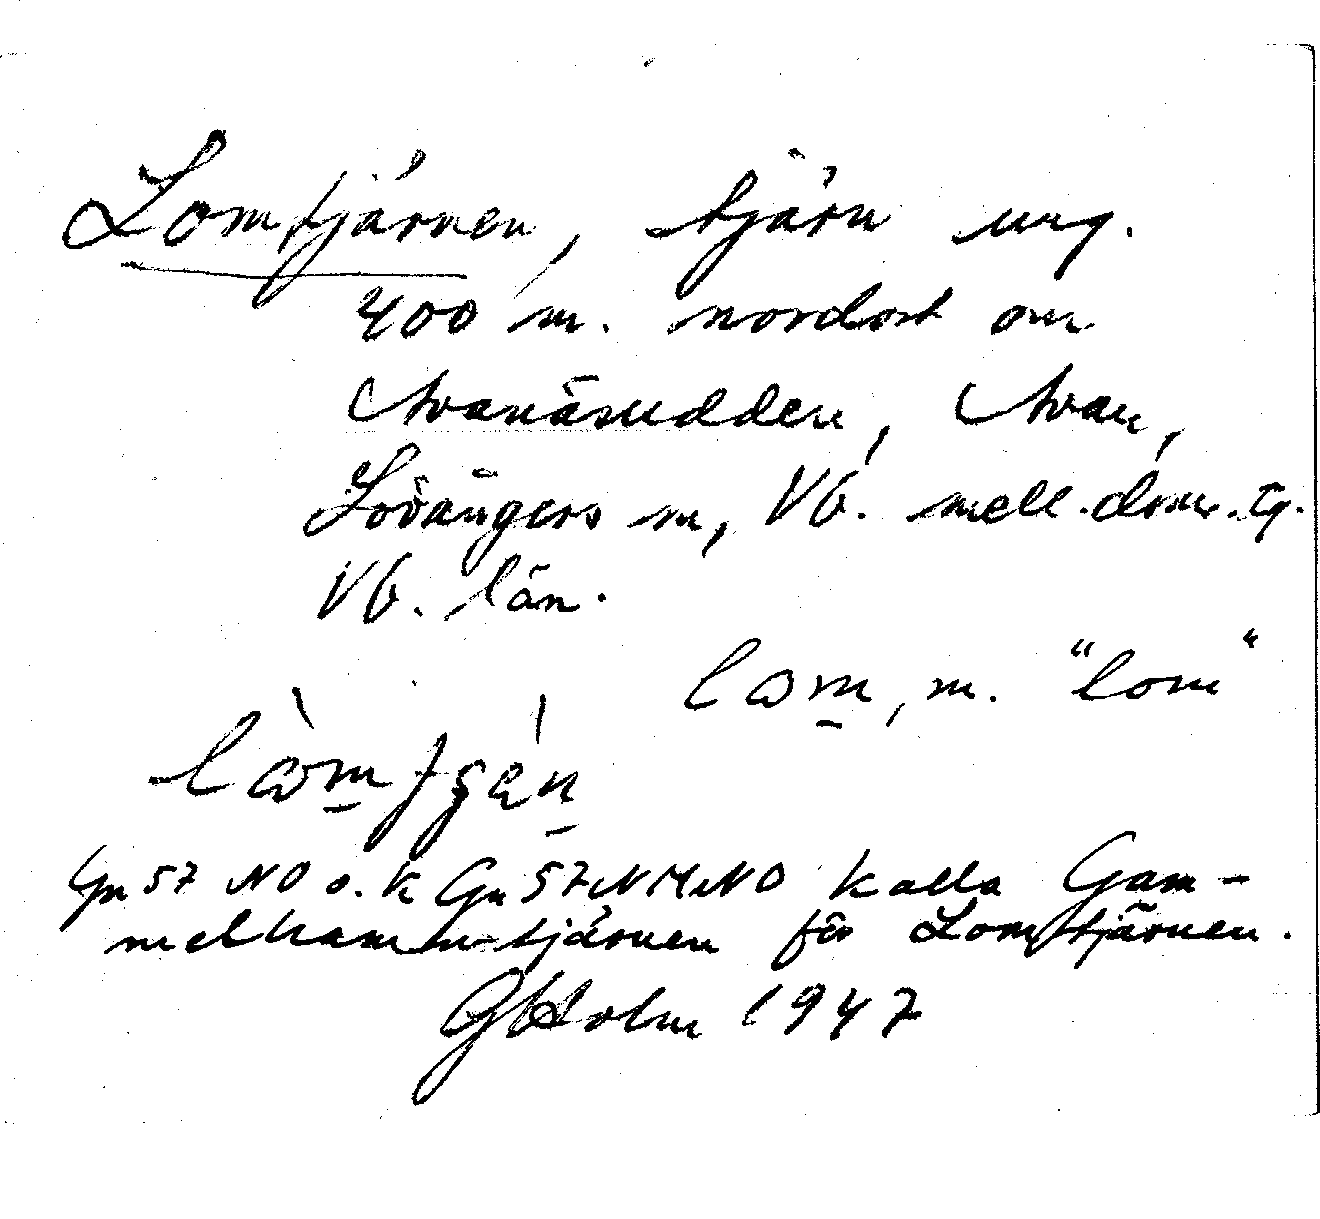 Lomtjärnen, tjärn ung.
400 m. nordost om
Avanäsudden, Avan,
Lövångers sn, Vb. mell. doms. tg.
Vb. län.
lɷm, m. "lom"
lɷ̀m
Gn 57 NO o. k Gn 57 NNO kalla Gam-
melhamn-tjärnen för Lomtjärnen.
Holm 1947